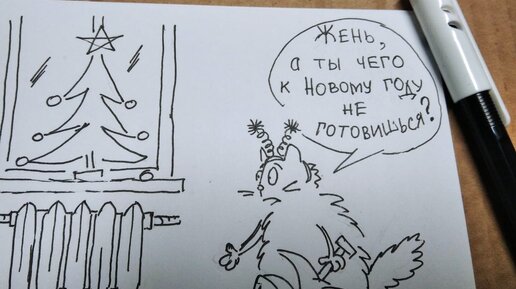 Жень,
а ты чего
к Новому году
не
готовишься?